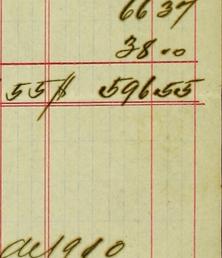 66 37
38 00
55 $ 596 55
de 1910